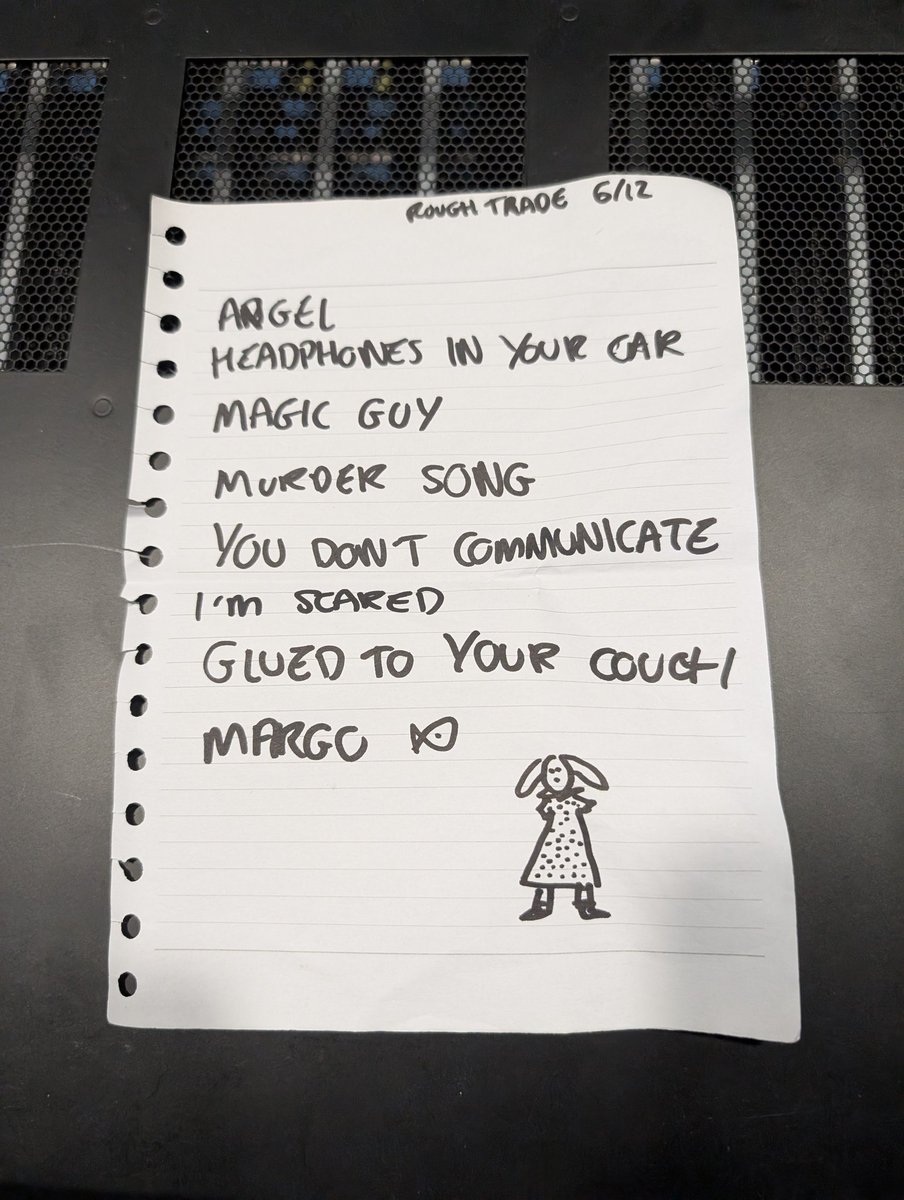 ROUGH TRADE 6/12
ANGEL
HEADPHONES IN YOUR CAR
MAGIC GUY
MURDER SONG
YOU DON'T COMMUNICATE
I'm SCARED
GLUED TO YOUR COUCH
MARGO